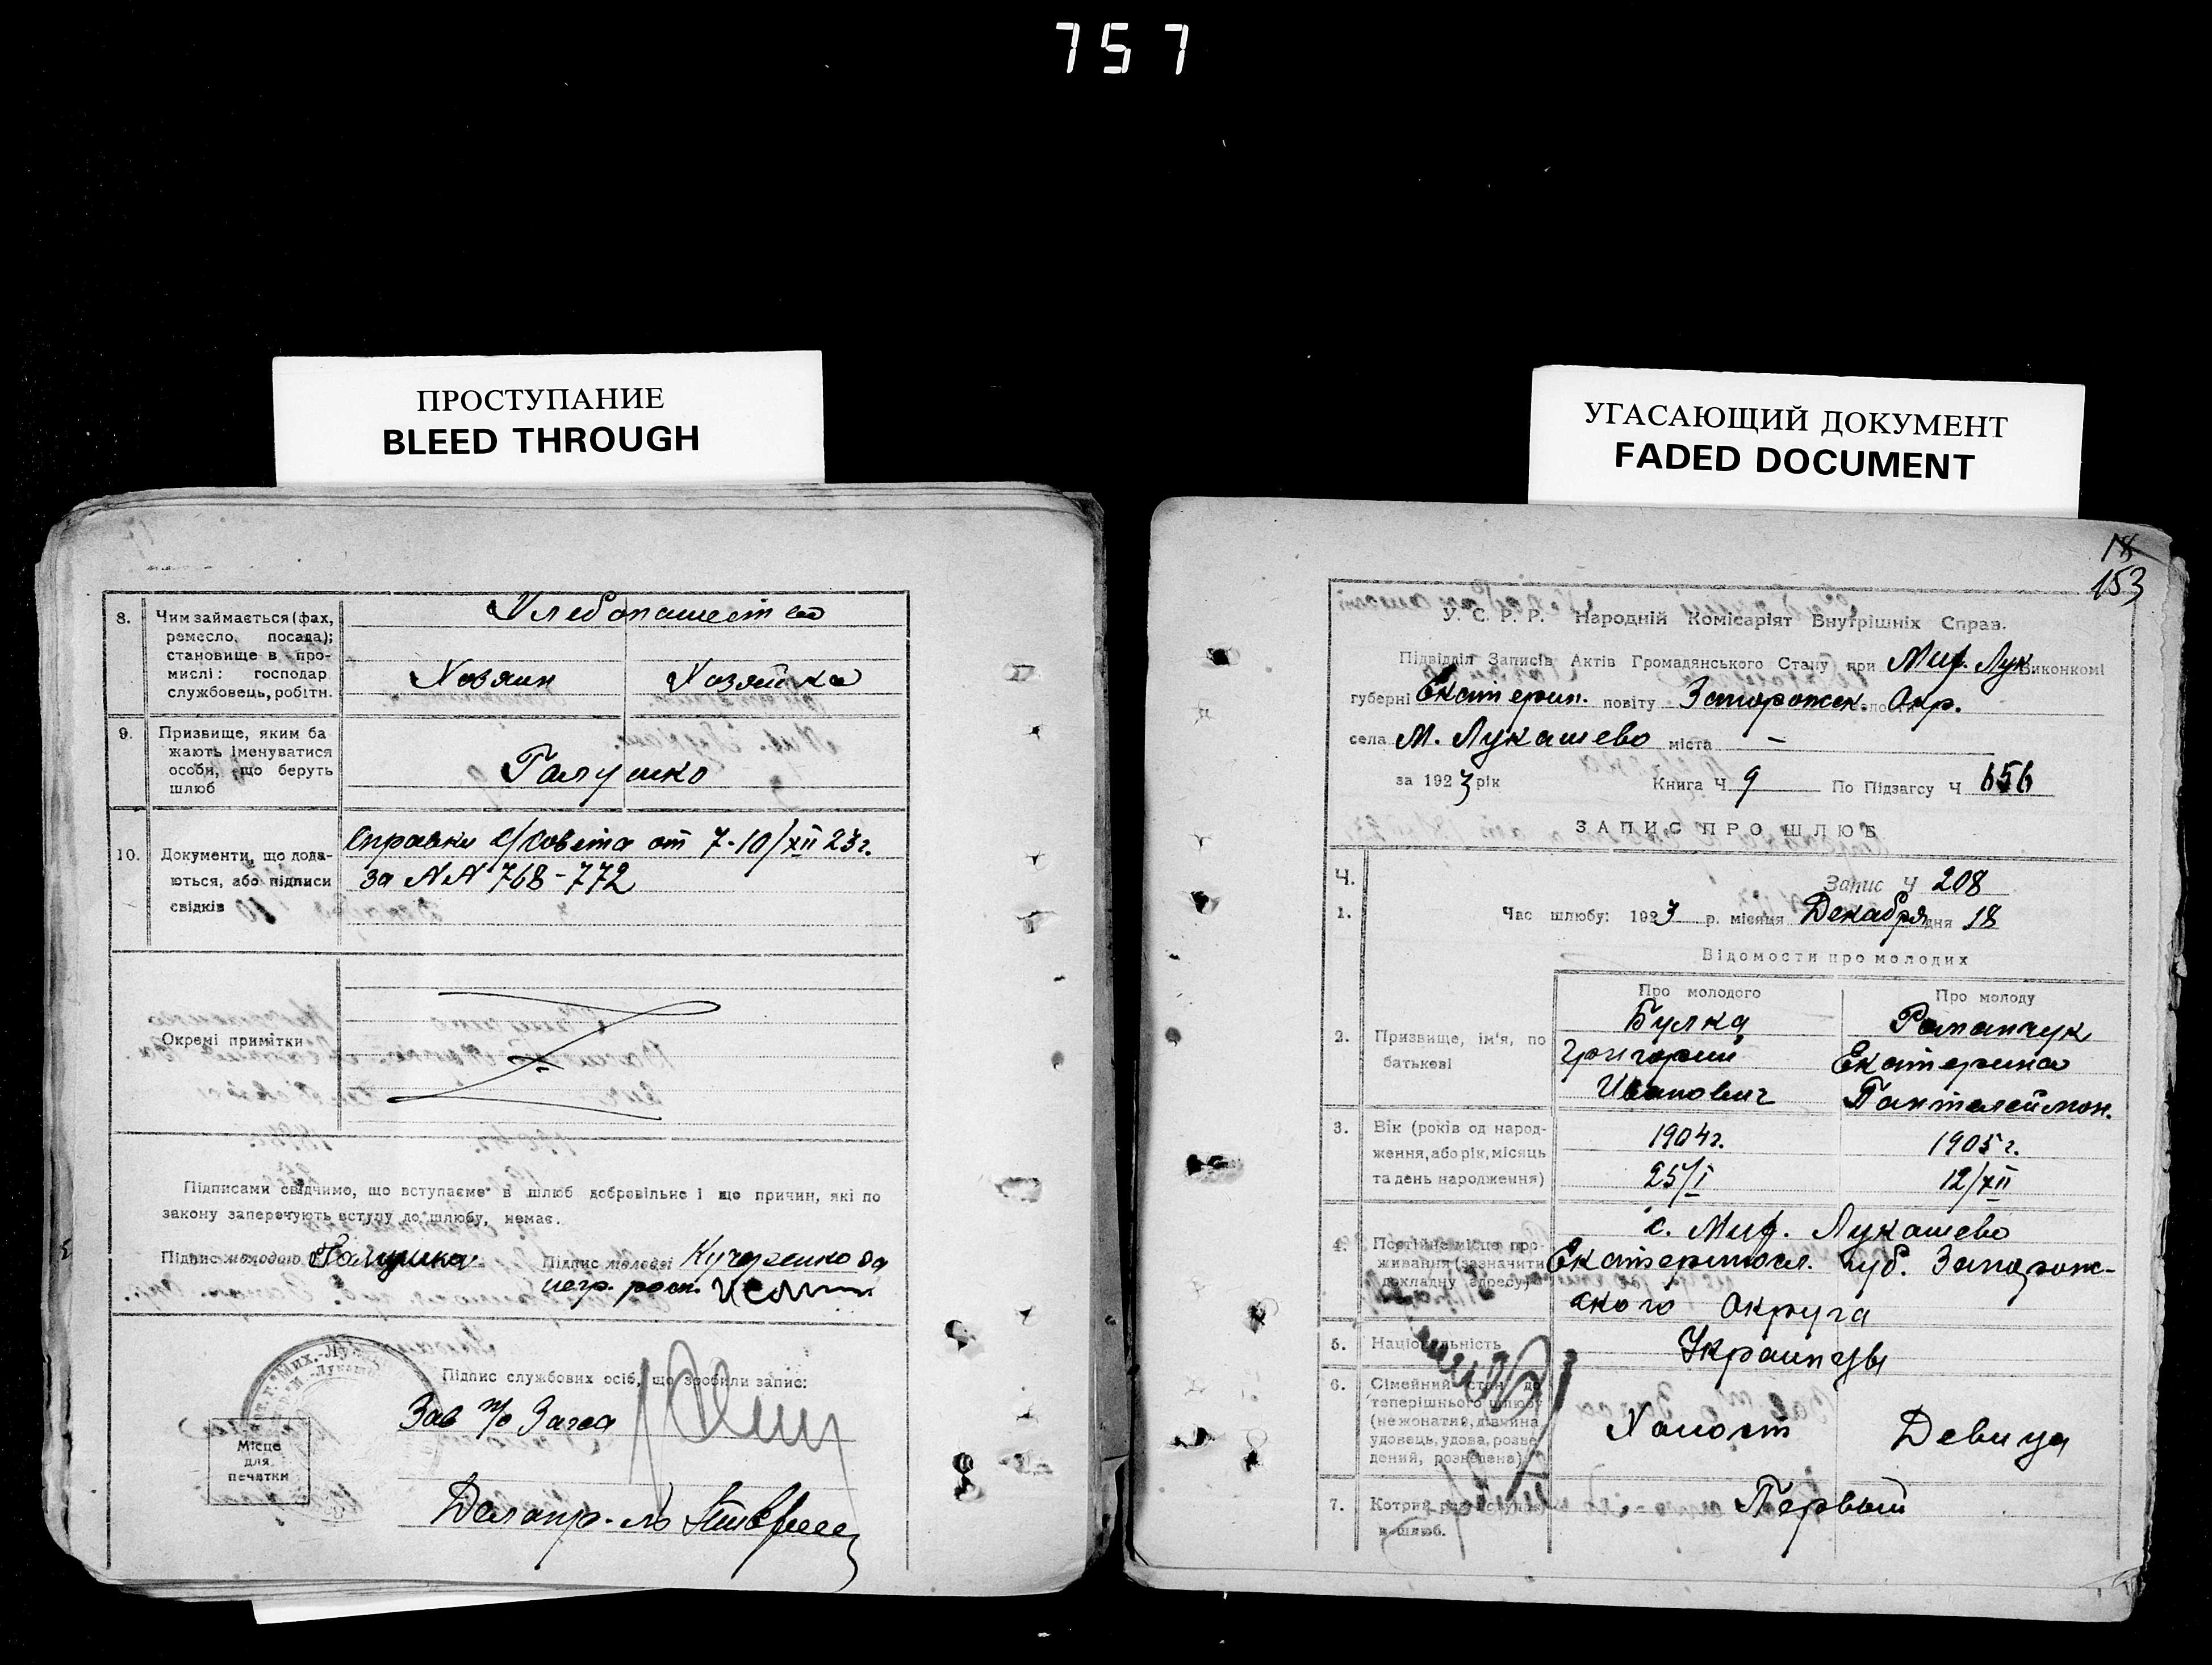 757
ПРОСТУПАНИЕ
BLEED THROUGH
8.
Чим займається (фах,
ремесло, посада);
становище в про-
мислі: господар
службовець, робітн.
Хлебопашество
Хозяин
Хозяйка
9.
Призвище, яким ба
жають іменуватися
особи, що беруть
шлюб
Галушко
10.
Документи, що дода-
ються, або підписи
свідків
Справки с/совета от 7-10/XII 23г.
за NN 768-772
Окремі примітки
Підписами свідчимо, що вступаємо в шлюб добровільне і що причин, які по
закону заперечують вступу до шлюбу, немає.
Підпис молодого Галушка
Підпис молодої
негр. росп.
Підпис службових осіб, що зробили запис:
Зав п/о Загса
Делопр-ль
Місце
для
печатки
УГАСАЮЩИЙ ДОКУМЕНТ
FADED DOCUMENT
18
153
У. С. Р. Р. Народній Комісаріят Внутрішніх Справ.
Підвідділ Записів Актів Громадянського Стану при Мих. Лук. Виконкомі
губерні Екатерин. повіту Запорожск. Окр.
села М. Лукашево міста —
за 1923 рік Книга Ч 9 По Підзагсу Ч 656
ЗАПИС ПРО ШЛЮБ
Ч.
Запис Ч 208
1.
Час шлюбу: 1923 р. місяця Декабря дня 18
Відомости про молодих
Про молодого
Про молоду
2.
Призвище, ім'я, по
батькові
Булка
Григорий
Иванович
Романчук
Екатерина
Пантелеймон.
3.
Вік (років од народ-
ження, або рік, місяць
та день народження)
1904г.
25/I
1905г.
12/XII
4.
Постійне місце про-
живання (зазначити
докладну адресу)
с. Мих. Лукашево
Екатериносл. губ. Запорож-
ского Округа
5.
Національність
Украинцы
6.
Сімейний стан до
теперішнього шлюбу
(нежонатий, дівчина
удовець, удова, розве
дений, розведена)
Холост
Девица
7.
Котрий раз вступає
в шлюб.
Первый